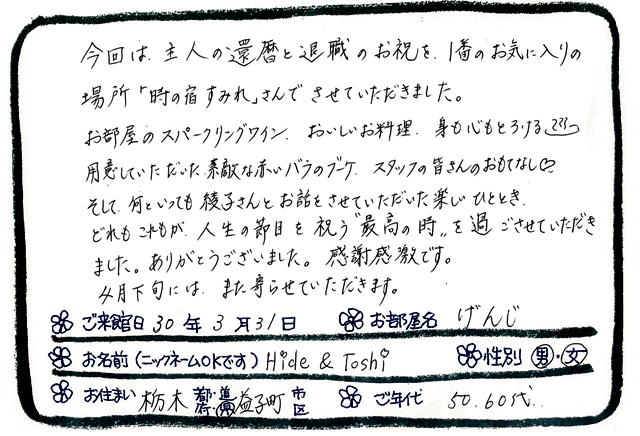 今回は、主人の還暦と退職のお祝を、1番のお気に入りの
場所「時の宿すみれ」さんでさせていただきました。
お部屋のスパークリングワイン、おいしいお料理、身も心もとろける♨
用意していただいた素敵な赤いバラのブーケ、スタッフの皆さんのおもてなし♡
そして、何といっても綾子さんとお話をさせていただいた楽しいひととき。
どれもこれもが、人生の節目を祝う"最高の時"を過ごさせていただき
ました。ありがとうございました。感謝感激です。
4月下旬には、また寄らせていただきます。
ご来館日 30年3月31日 お部屋名 げんじ
お名前(ニックネームOKです) Hide & Toshi 性別 男・女
お住まい 栃木 都道府県 益子町 市区 ご年代 50.60代